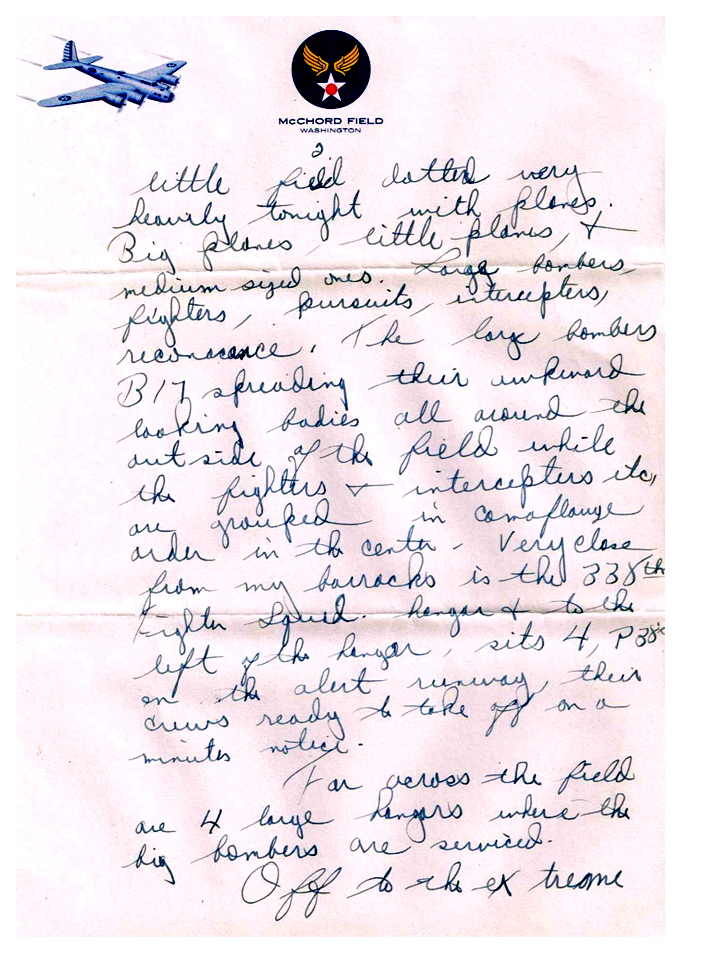 McCHORD FIELD
WASHINGTON
2
little field dotted very
heavily tonight with planes.
Big planes, little planes, &
medium sized ones. Large bombers,
fighters, pursuits, intercepters,
reconacance. The large bombers
B17 spreading their awkward
looking bodies all around the
out side of the field while
the fighters & intercepters etc,
are grouped in comoflauge
order in the center. Very close
from my barracks is the 338th
Fighter Squid. hangar & to the
left of the hangar, sits 4, P38's
on the alert runway, their
crews ready to take off on a
minutes notice.
Far across the field
are 4 large hangors where the
big bombers are serviced.
Off to the ex treame